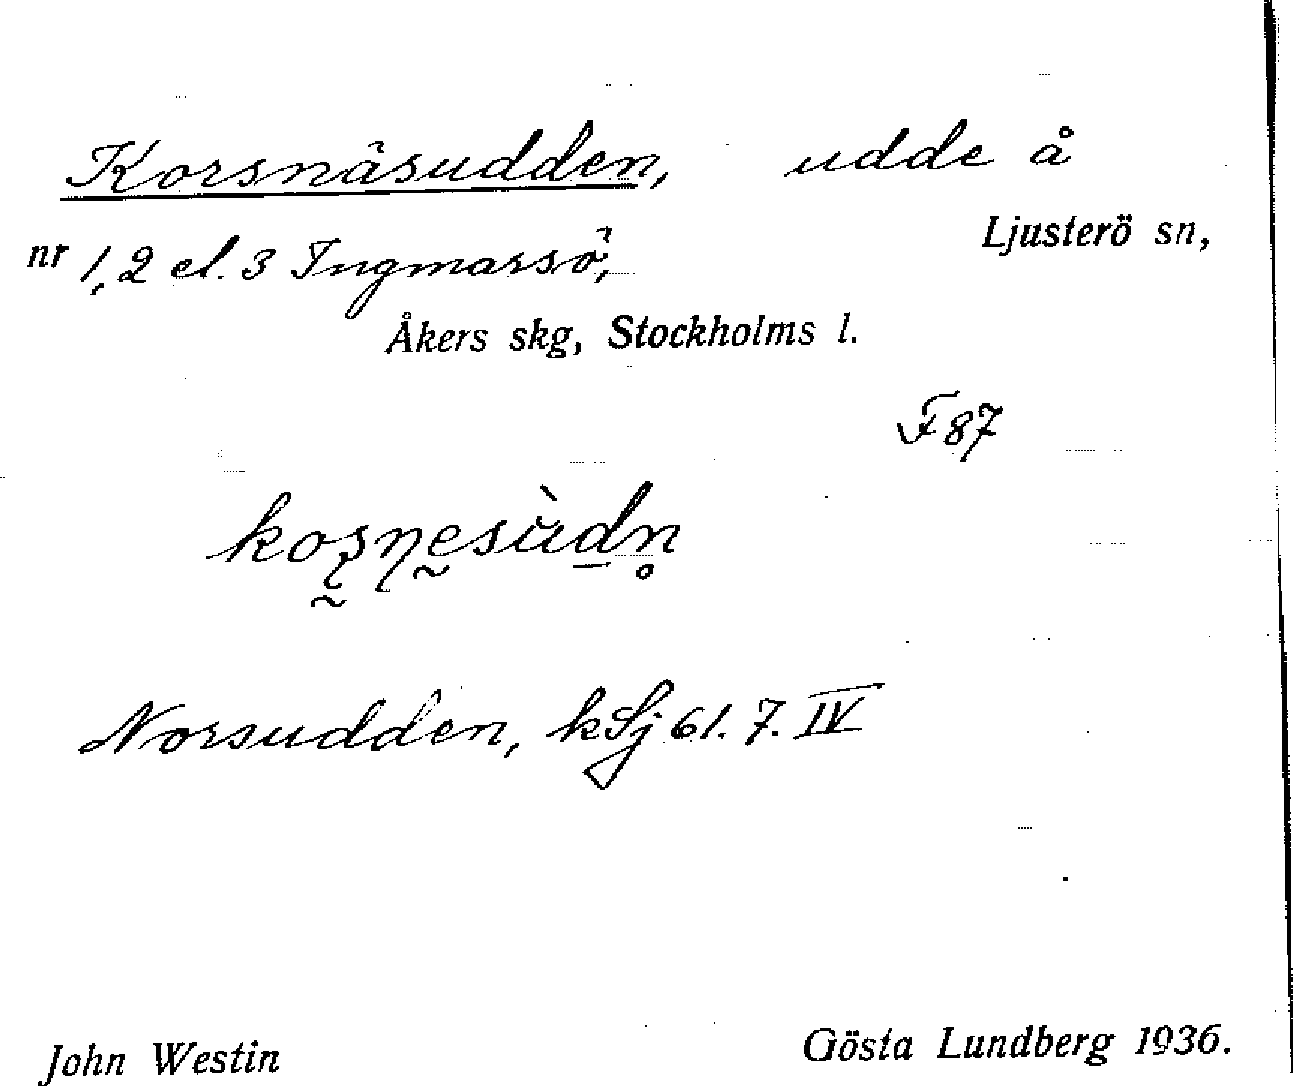 Korsnäsudden, udde å
Ljusterö sn,
nr 1, 2 el. 3 Ingmarsö,
Åkers skg, Stockholms l.
F 87
Norsudden, kSj 61. 7. IV
John Westin Gösta Lundberg 1936.